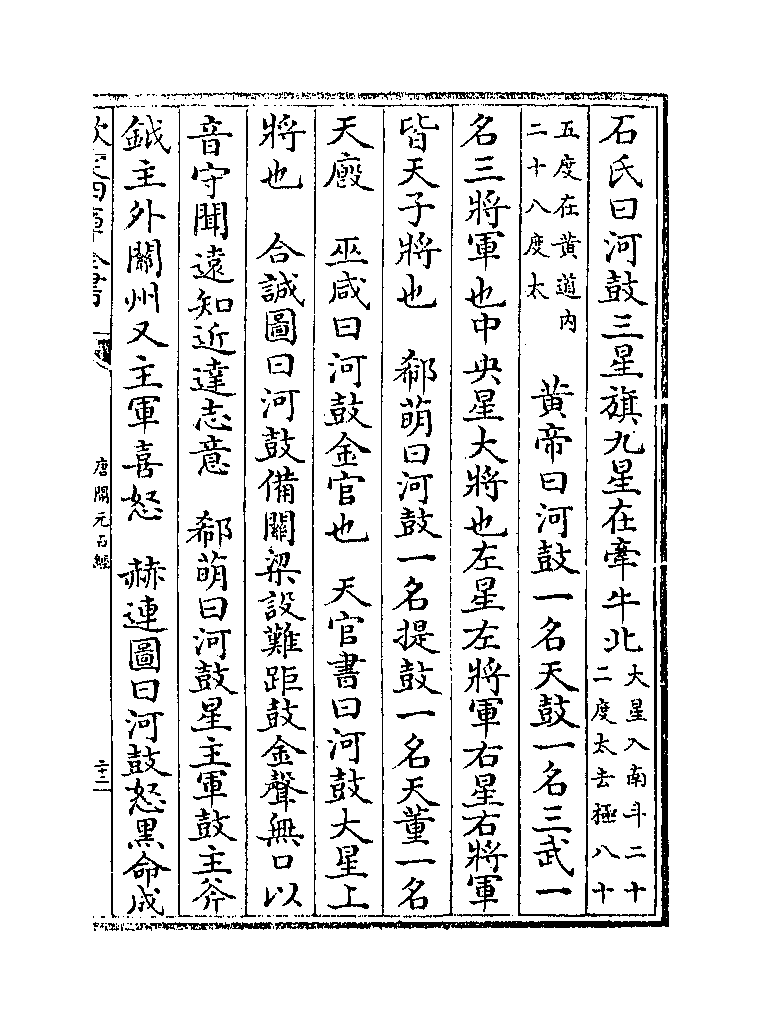 石氏曰河鼓三星旗九星在牽牛北大星入南斗二十二度太去極八十
五度在黄道内二十八度太　黄帝曰河鼓一名天鼓一名三武一
名三將軍也中央星大將也左星左將軍右星右將軍
皆天子將也　郗萌曰河鼓一名提鼓一名天董一名
天廄　巫咸曰河鼓金官也　天官書曰河鼓大星上
將也　合誠圖曰河鼓備關梁設難距鼓金聲無口以
音守聞遠知近達志意　郗萌曰河鼓星主軍鼓主斧
鉞主外關州又主軍喜怒　赫連圖曰河鼓怒黒命成
欽定四庫全書
唐開元占經
二十二